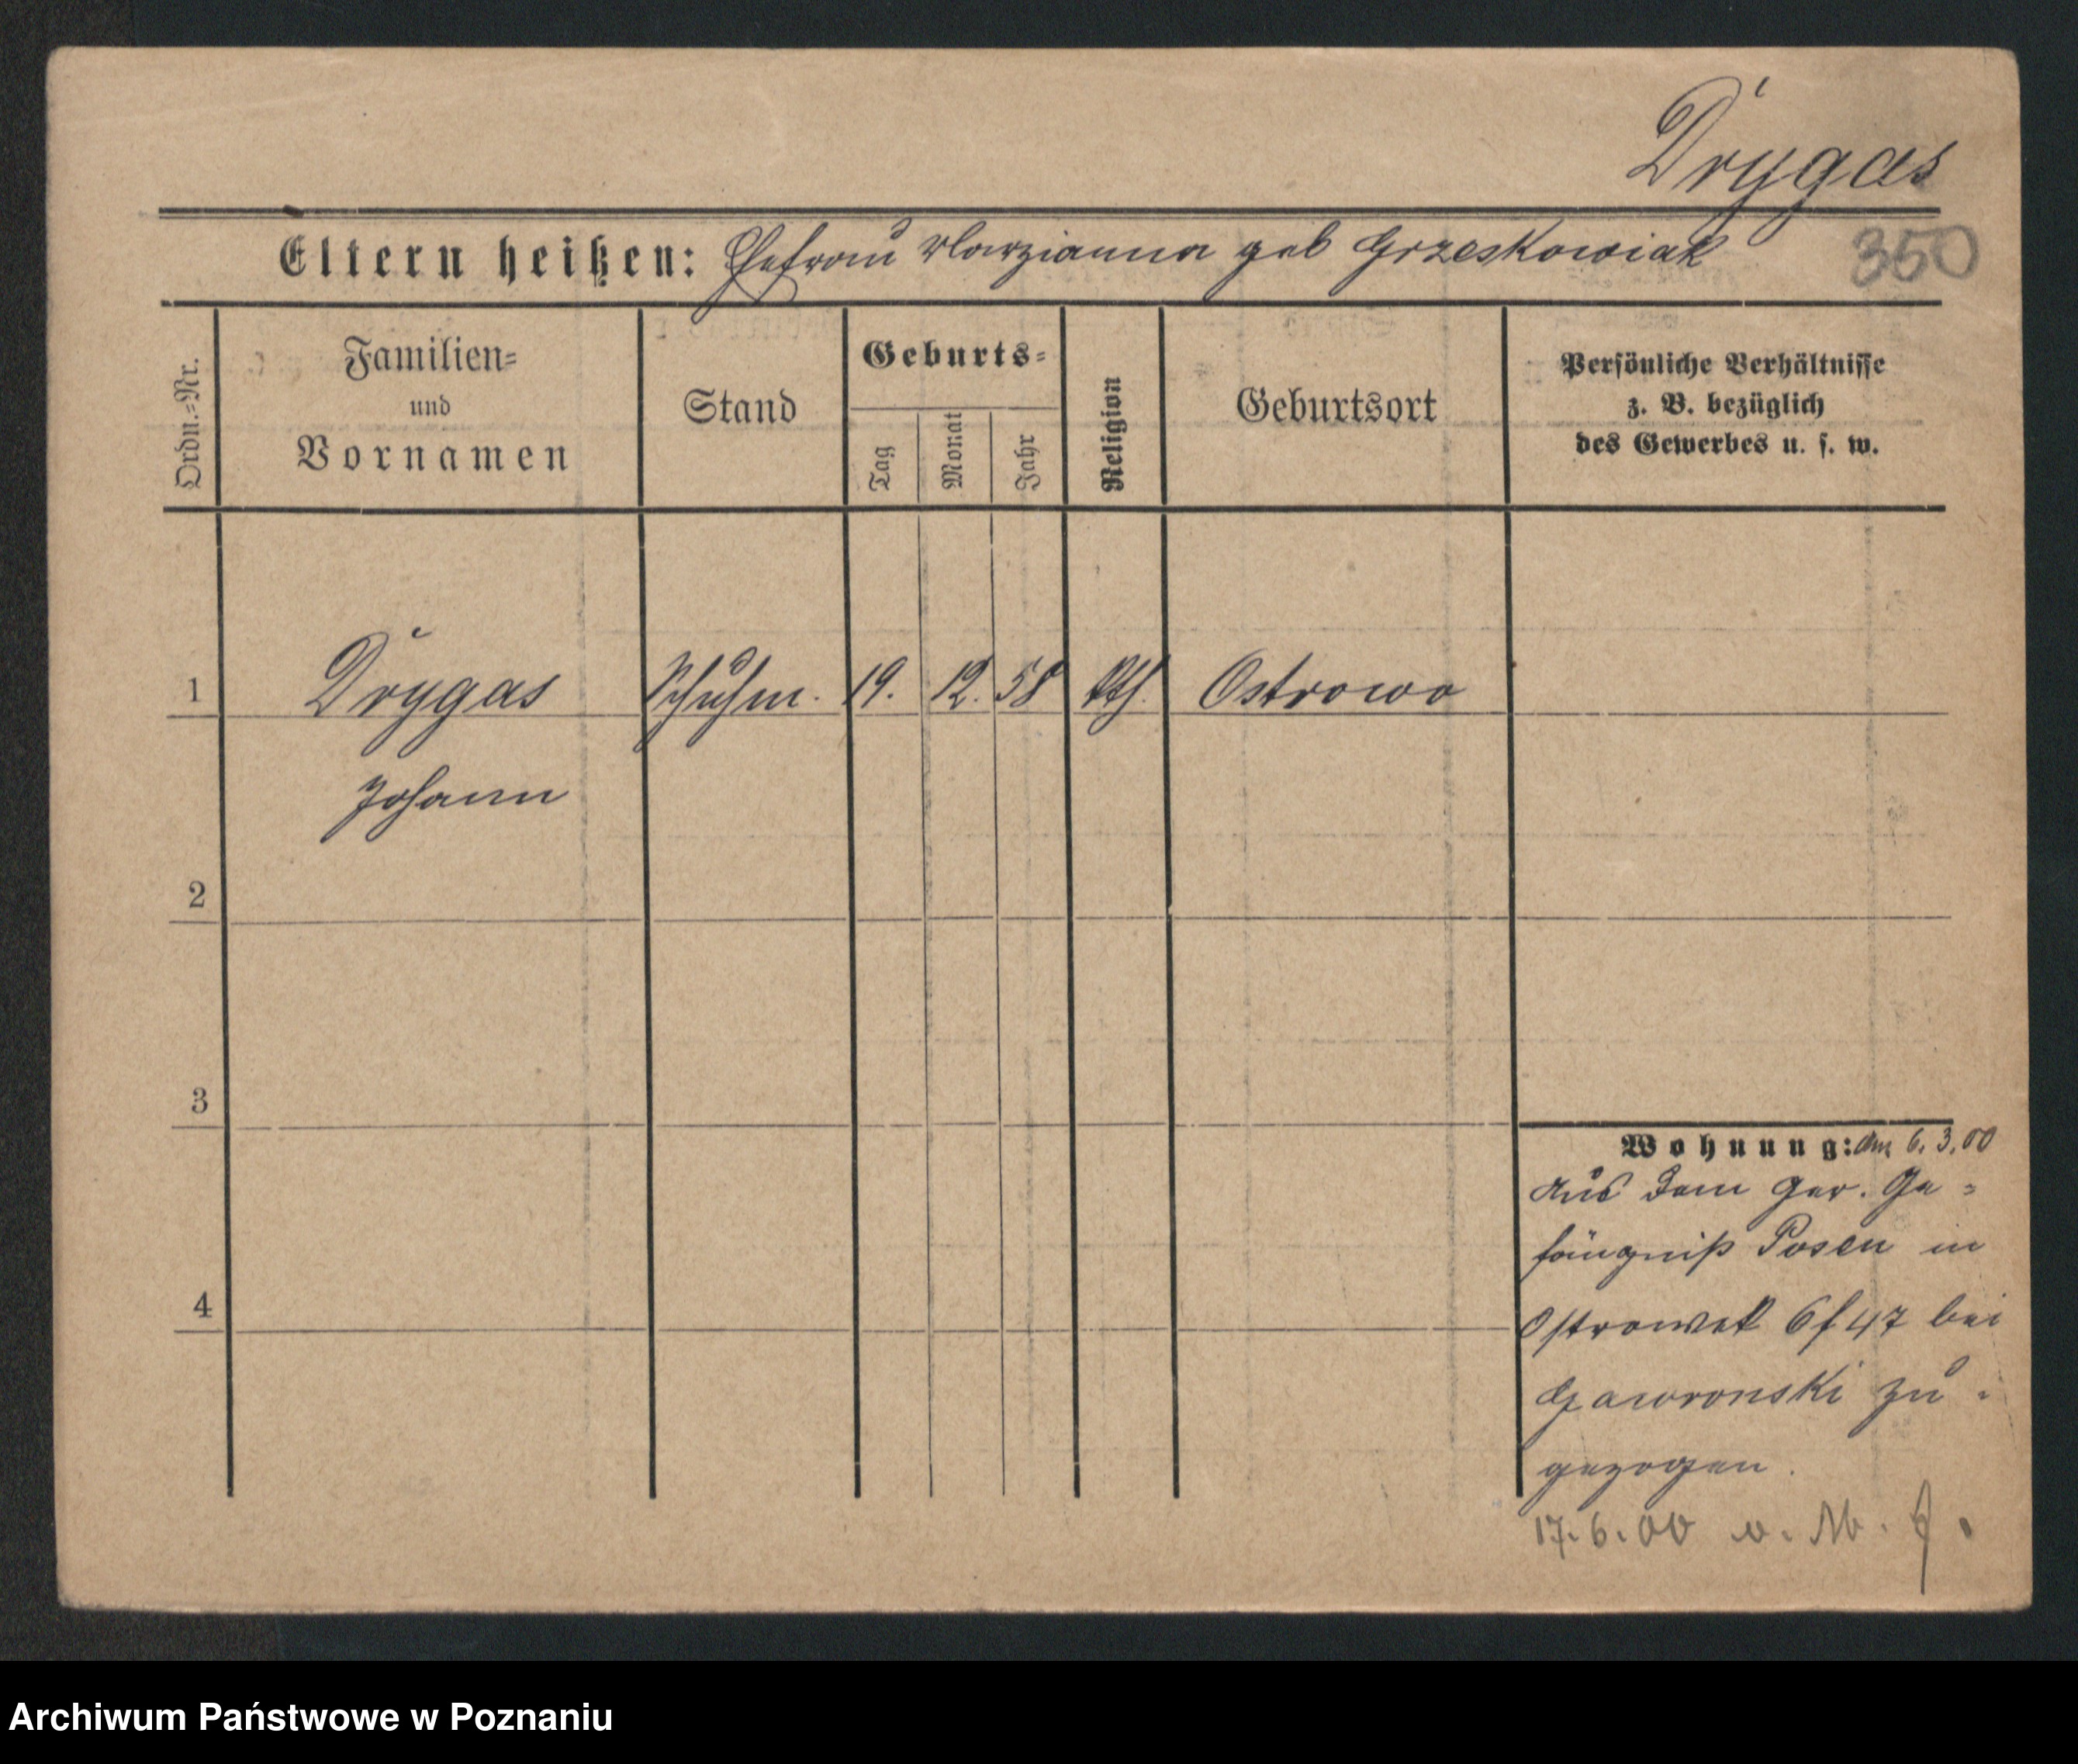 Drygas
Eltern heißen: Ehefrau Marzianna geb Grzeskowiak 350
Ordn.=Nr.
Familien=
und
Vornamen
Stand
Geburts=
Tag
Monat
Jahr
Religion
Geburtsort
Persönliche Verhältnisse
z. B. bezüglich
des Gewerbes u. s. w.
1 Drygas Schuhm. 19. 12. 58 kth. Ostrowo
Johann
2
3
4
Wohnung: Am 6.3.00
Aus dem Ger. Ge=
fängniß Posen in
Ostrowek 6/47 bei
Gawronski zu=
gezogen.
17.6.00 v. M.
Archiwum Państwowe w Poznaniu